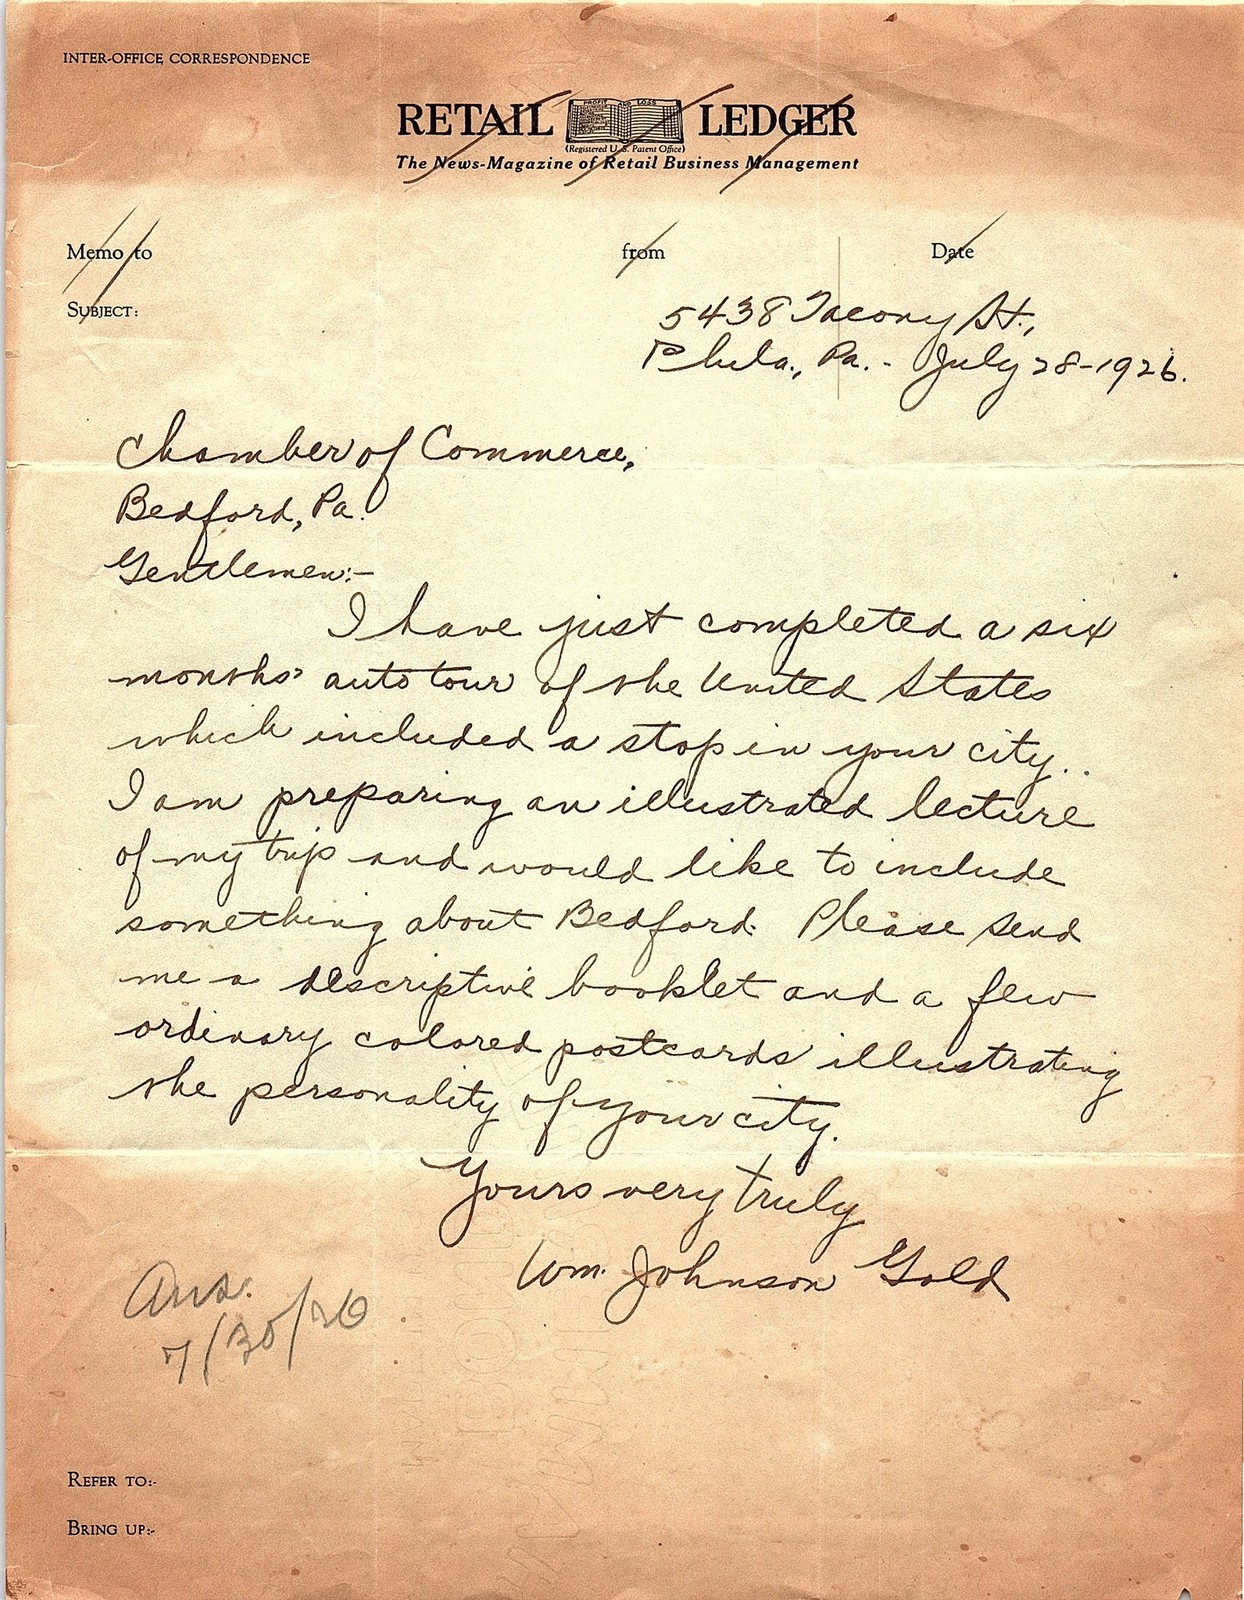 INTER-OFFICE CORRESPONDENCE
RETAIL LEDGER
PROFIT AND LOSS
(Registered U. S. Patent Office)
The News-Magazine of Retail Business Management
Memo to from Date
SUBJECT:
5438 Tacony St.,
Phila., Pa. - July 28-1926.
Chamber of Commerce,
Bedford, Pa.
Gentlemen:-
I have just completed a six
months' auto tour of the United States
which included a stop in your city..
I am preparing an illustrated lecture
of my trip and would like to include
something about Bedford. Please send
me a descriptive booklet and a few
ordinary colored postcards illustrating
the personality of your city.
Yours very truly
Wm. Johnson Gold
Ans.
7/30/26
REFER TO:-
BRING UP:-